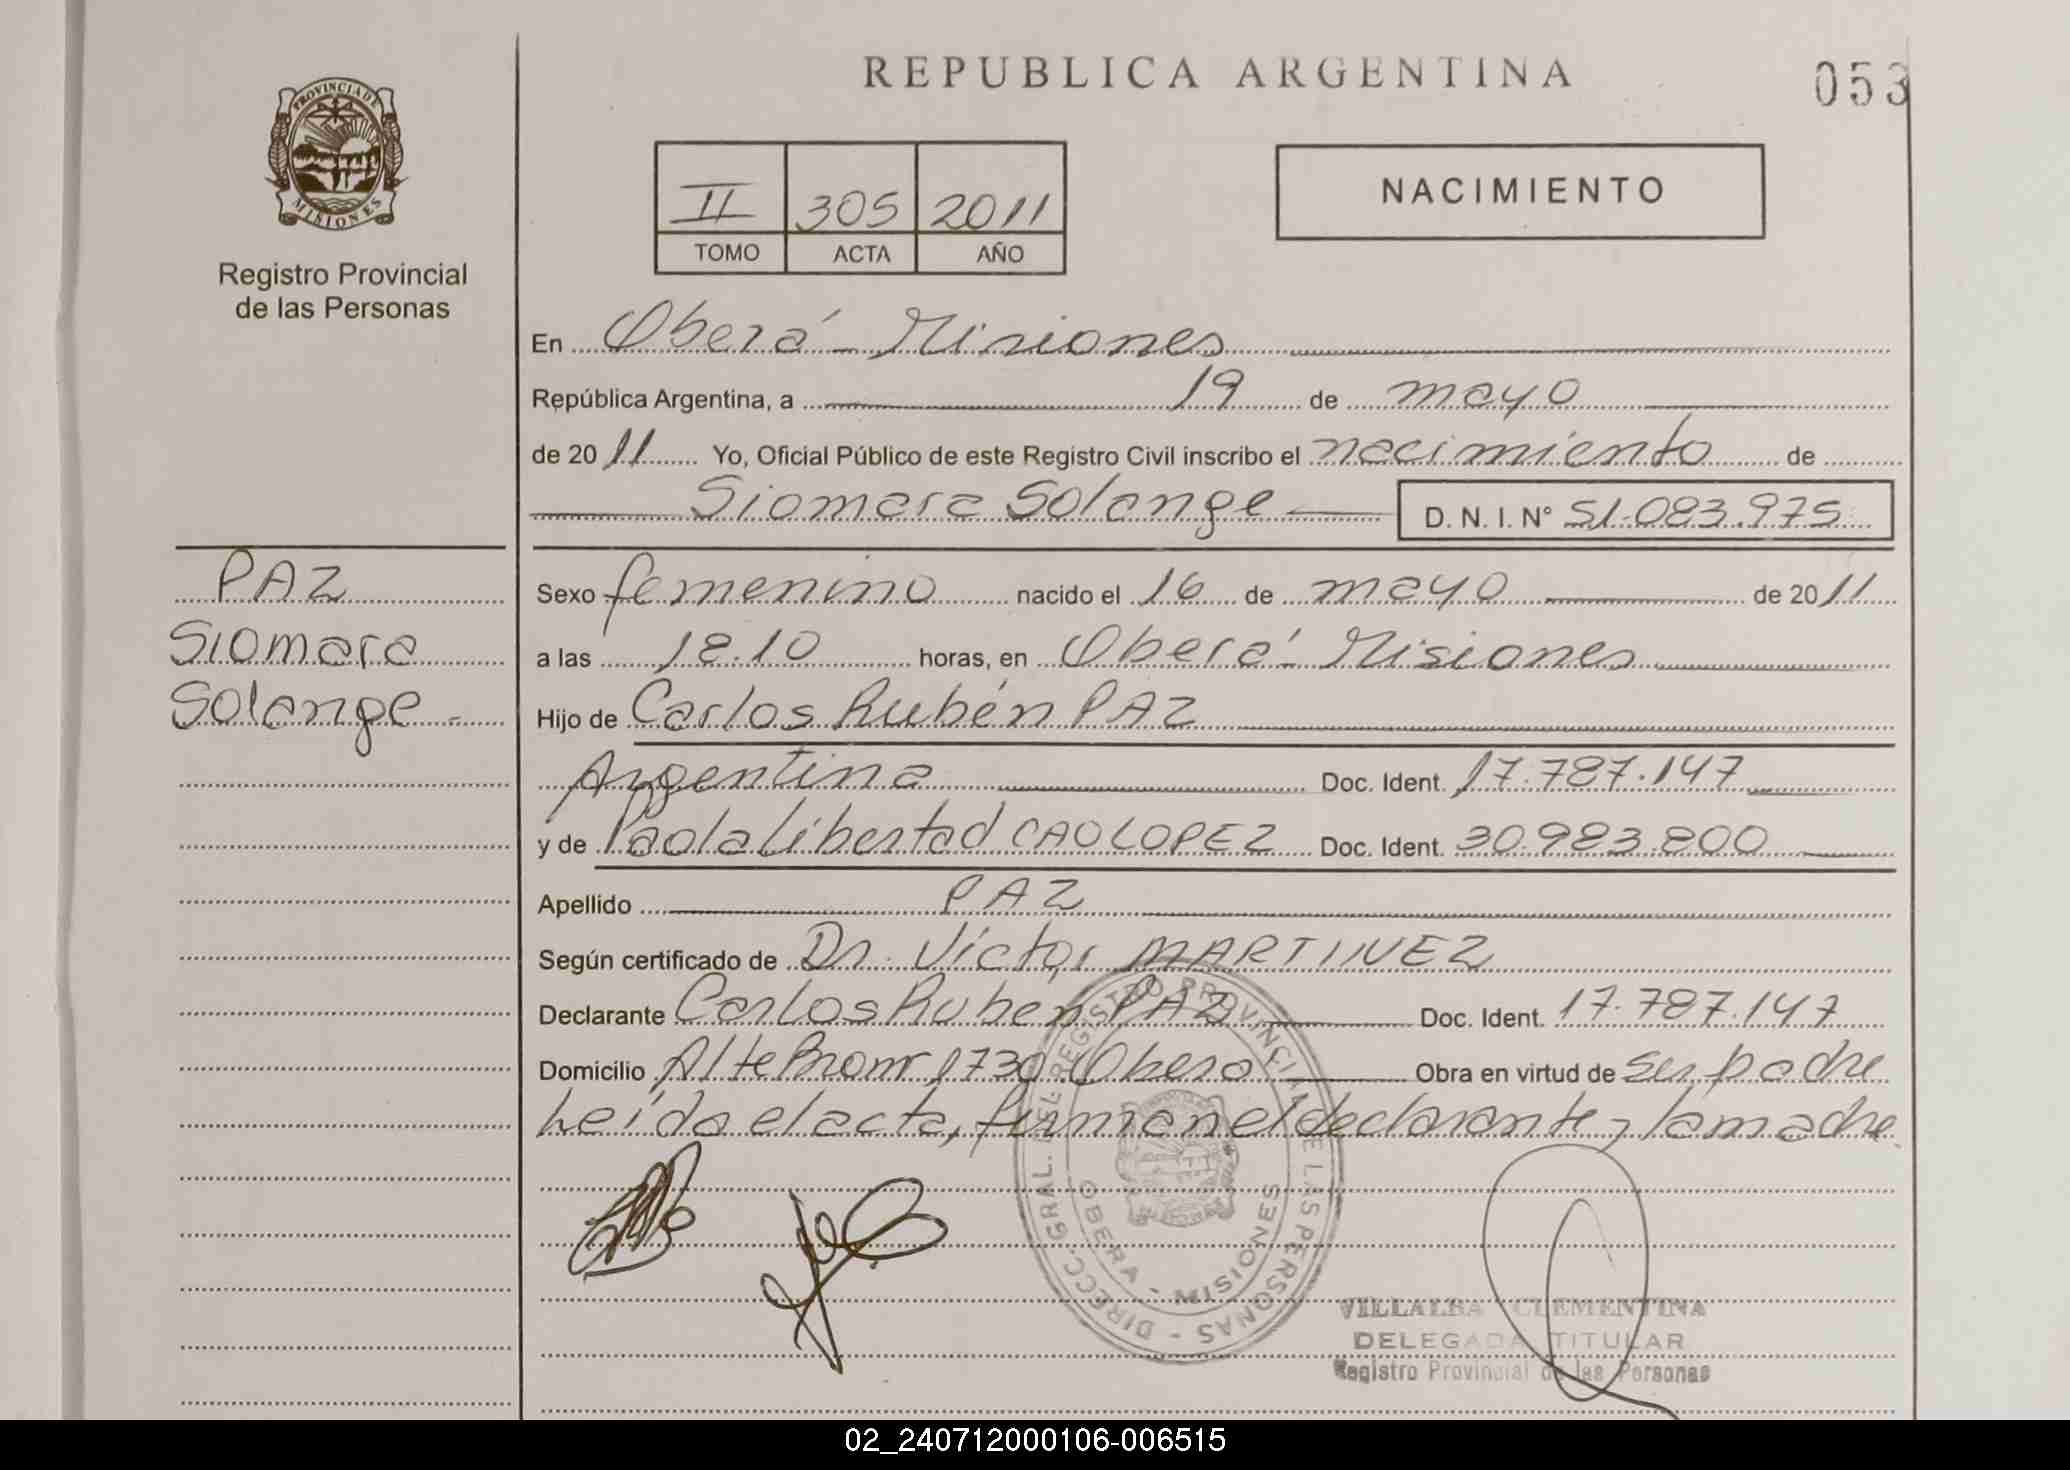 REPUBLICA ARGENTINA
053
PROVINCIA DE MISIONES
Registro Provincial
de las Personas
II 305 2011
TOMO ACTA AÑO
NACIMIENTO
En Oberá - Misiones
República Argentina, a 19 de mayo
de 2011 Yo, Oficial Público de este Registro Civil inscribo el nacimiento de
Siomara Solange D.N.I. Nº 51.083.975
PAZ
Siomara
Solange
Sexo femenino nacido el 16 de mayo de 2011
a las 18.10 horas, en Oberá - Misiones
Hijo de Carlos Rubén PAZ
Argentina Doc. Ident. 17.787.147
y de Paola Libertad CAO LOPEZ Doc. Ident. 30.983.800
Apellido PAZ
Según certificado de Dr. Víctor MARTINEZ
Declarante Carlos Ruben PAZ Doc. Ident. 17.787.147
Domicilio Alte Brown 1730 Obera Obra en virtud de ser padre
Leído el acta, firman el declarante y la madre
DIRECC. GRAL. DEL REGISTRO PROVINCIAL DE LAS PERSONAS -
OBERA - MISIONES
VILLALBA CLEMENTINA
DELEGADA TITULAR
Registro Provincial de las Personas
02_240712000106-006515